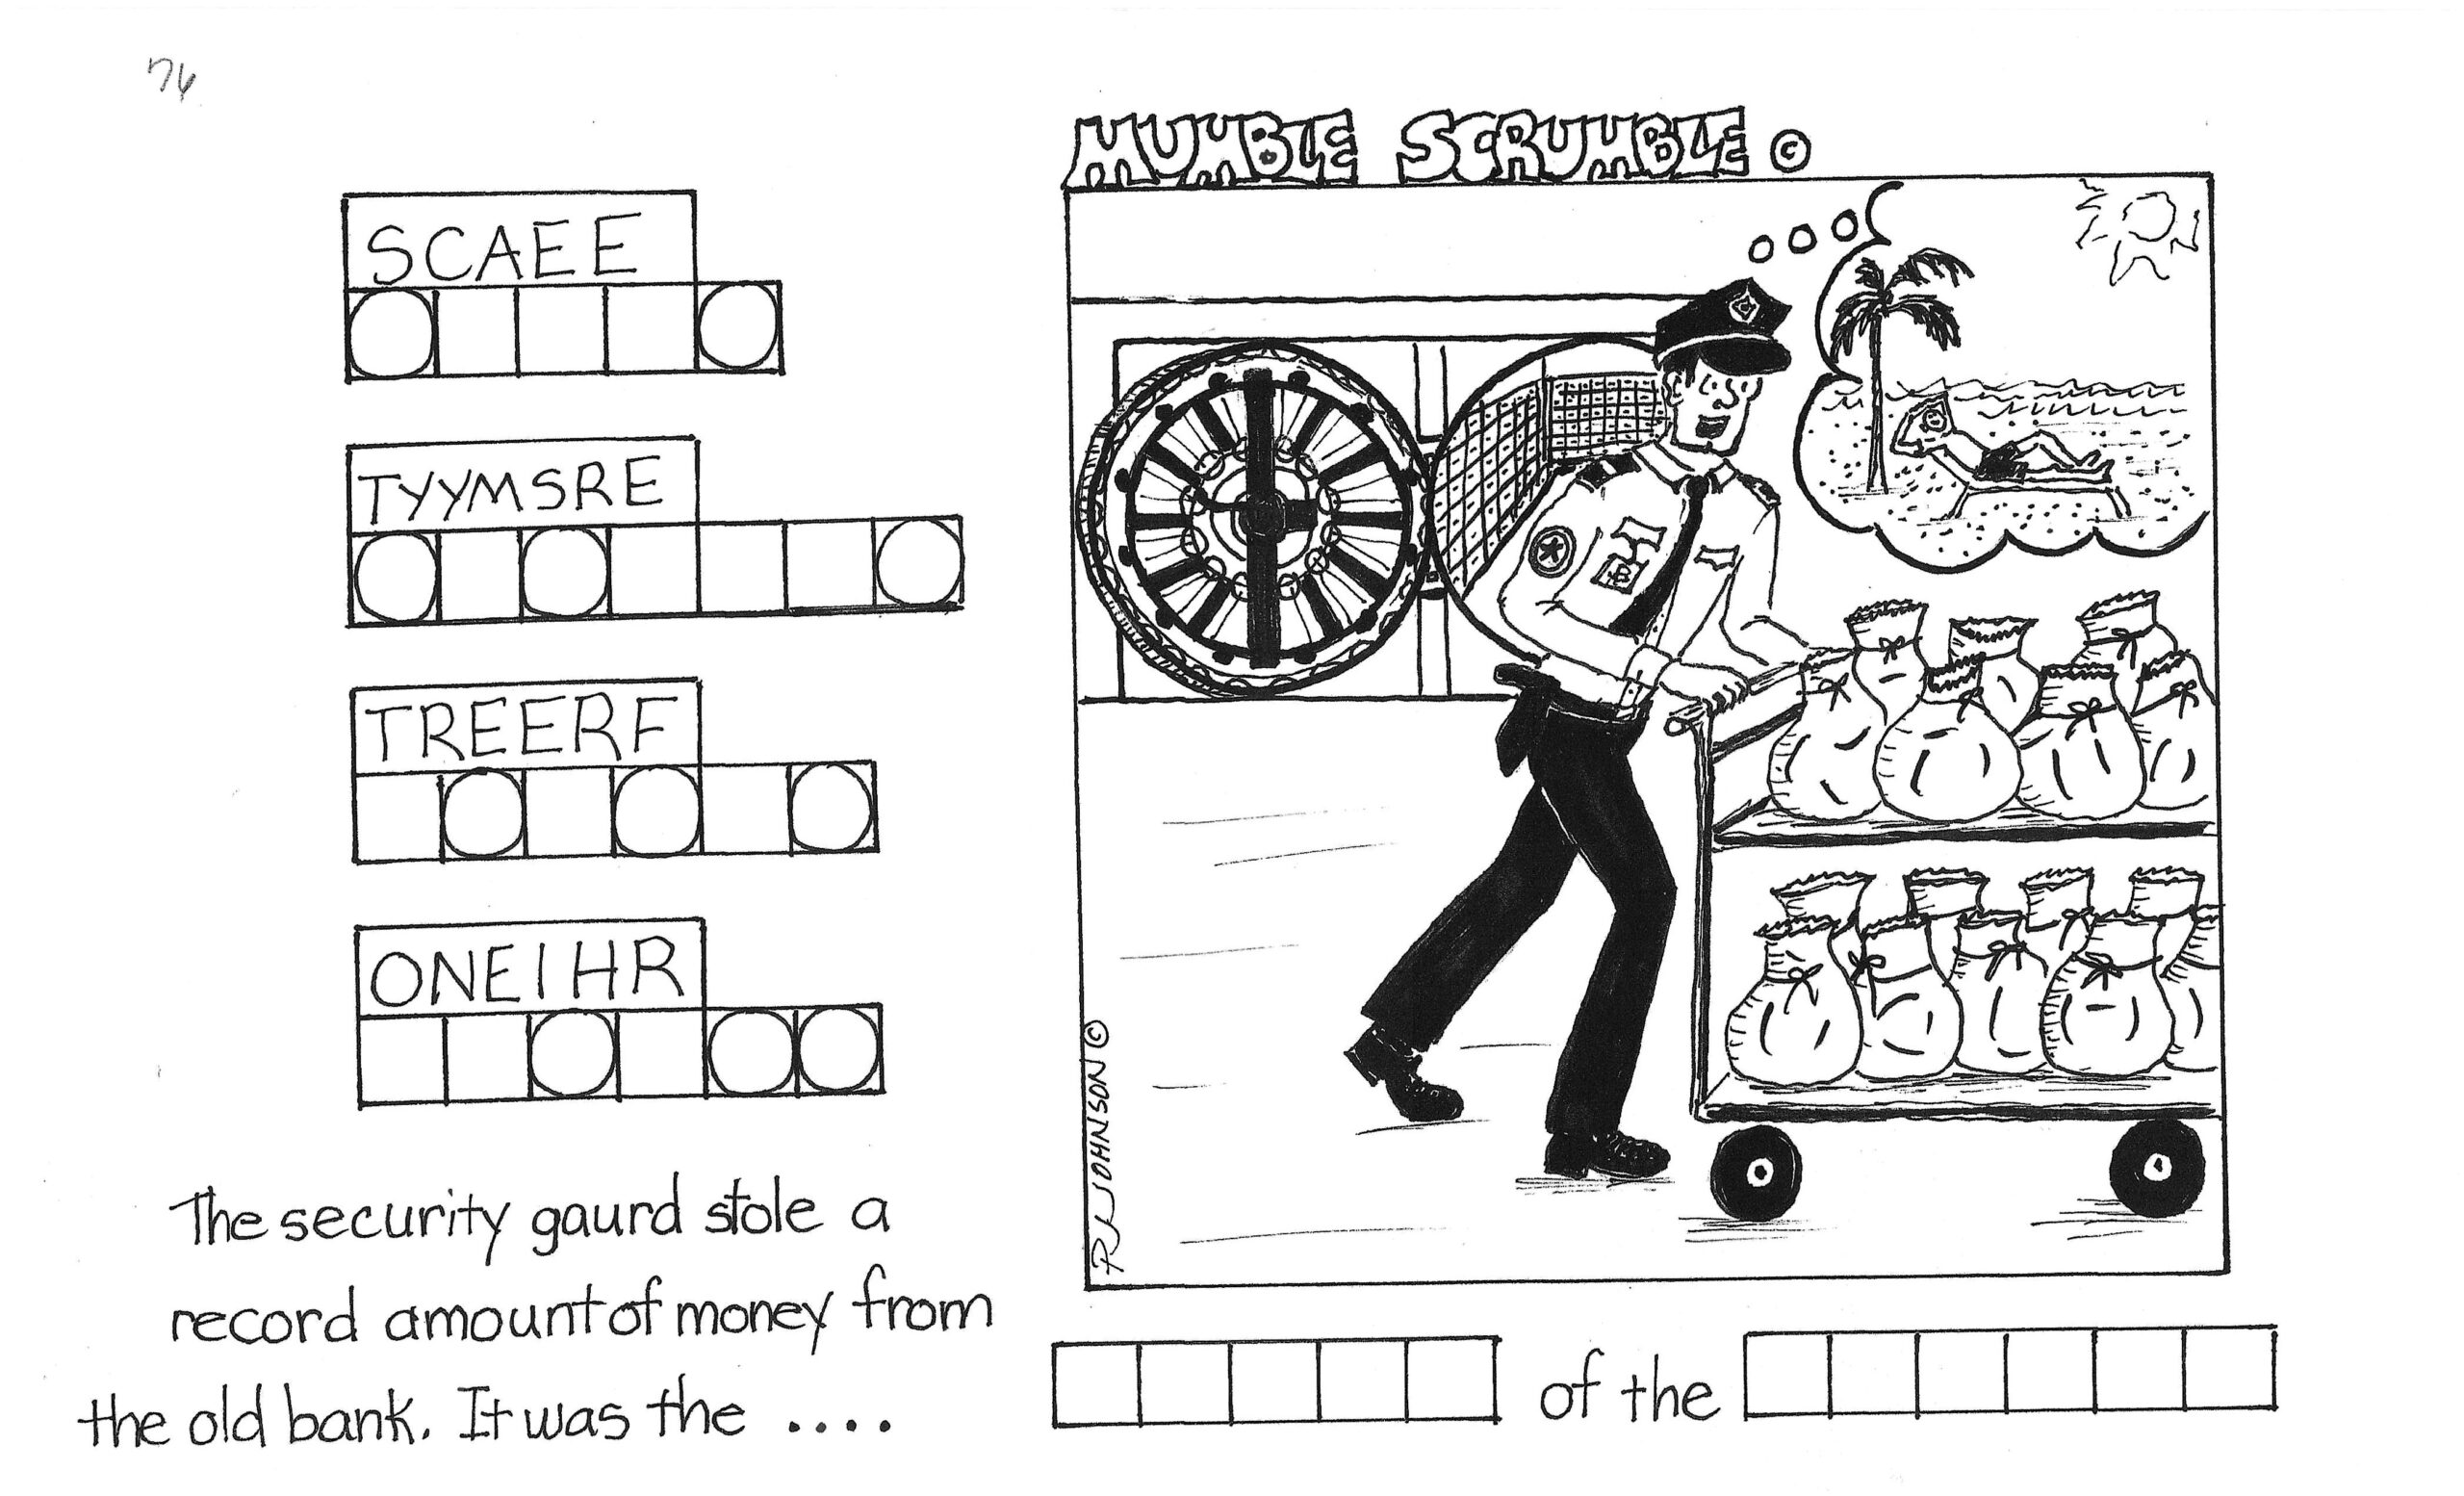 76
MUMBLE SCRUMBLE ©
SCAEE
TYYMSRE
TREERF
ONEIHR
The security gaurd stole a
record amount of money from
the old bank. It was the ....
of the
JOHNSON ©